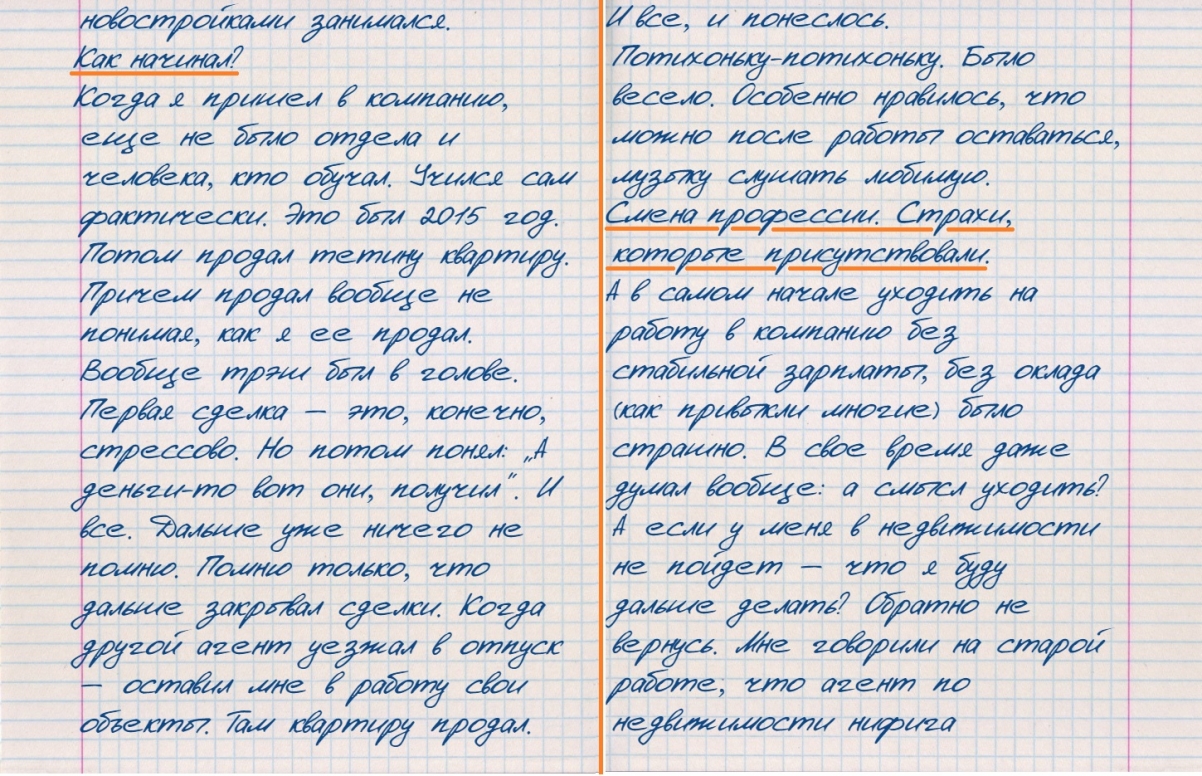 новостройками занимался.
Как начинал?
Когда я пришел в компанию,
еще не было отдела и
человека, кто обучал. Учился сам
фактически. Это был 2015 год.
Потом продал тетину квартиру.
Причем продал вообще не
понимая, как я ее продал.
Вообще трэш был в голове.
Первая сделка — это, конечно,
стрессово. Но потом понял: „А
деньги-то вот они, получил”. И
все. Дальше уже ничего не
помню. Помню только, что
дальше закрывал сделки. Когда
другой агент уезжал в отпуск
— оставил мне в работу свои
объекты. Там квартиру продал.
И все, и понеслось.
Потихоньку-потихоньку. Было
весело. Особенно нравилось, что
можно после работы оставаться,
музыку слушать любимую.
Смена профессии. Страхи,
которые присутствовали.
А в самом начале уходить на
работу в компанию без
стабильной зарплаты, без оклада
(как привыкли многие) было
страшно. В свое время даже
думал вообще: а смысл уходить?
А если у меня в недвижимости
не пойдет — что я буду
дальше делать? Обратно не
вернусь. Мне говорили на старой
работе, что агент по
недвижимости нифига